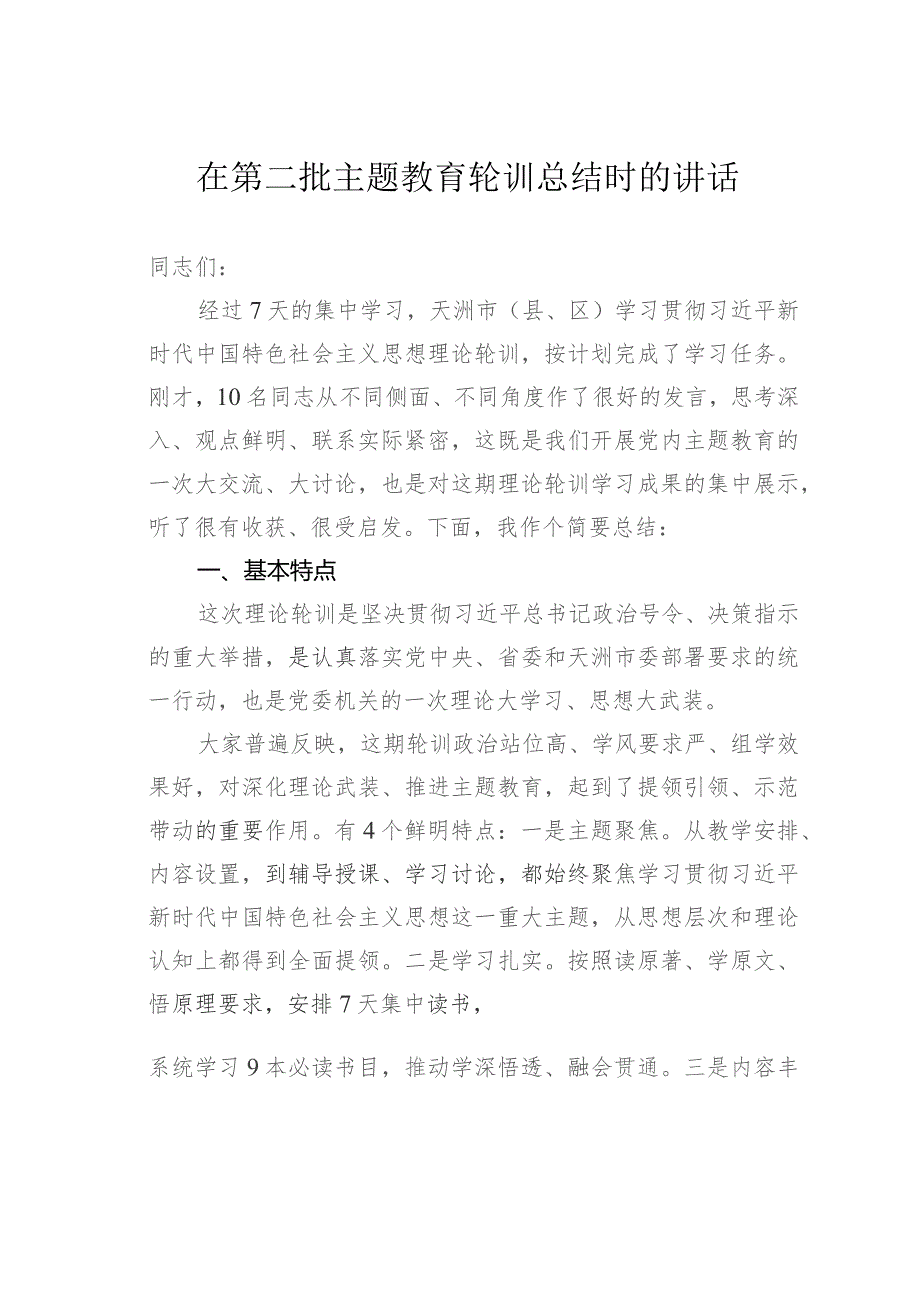 在第二批主题教育轮训总结时的讲话
同志们：
经过 7 天的集中学习，天洲市（县、区）学习贯彻习近平新
时代中国特色社会主义思想理论轮训，按计划完成了学习任务。
刚才，10 名同志从不同侧面、不同角度作了很好的发言，思考深
入、观点鲜明、联系实际紧密，这既是我们开展党内主题教育的
一次大交流、大讨论，也是对这期理论轮训学习成果的集中展示，
听了很有收获、很受启发。下面，我作个简要总结：
一、基本特点
这次理论轮训是坚决贯彻习近平总书记政治号令、决策指示
的重大举措，是认真落实党中央、省委和天洲市委部署要求的统
一行动，也是党委机关的一次理论大学习、思想大武装。
大家普遍反映，这期轮训政治站位高、学风要求严、组学效
果好，对深化理论武装、推进主题教育，起到了提领引领、示范
带动的重要作用。有 4 个鲜明特点：一是主题聚焦。从教学安排、
内容设置，到辅导授课、学习讨论，都始终聚焦学习贯彻习近平
新时代中国特色社会主义思想这一重大主题，从思想层次和理论
认知上都得到全面提领。二是学习扎实。按照读原著、学原文、
悟原理要求，安排 7 天集中读书，
系统学习 9 本必读书目，推动学深悟透、融会贯通。三是内容丰